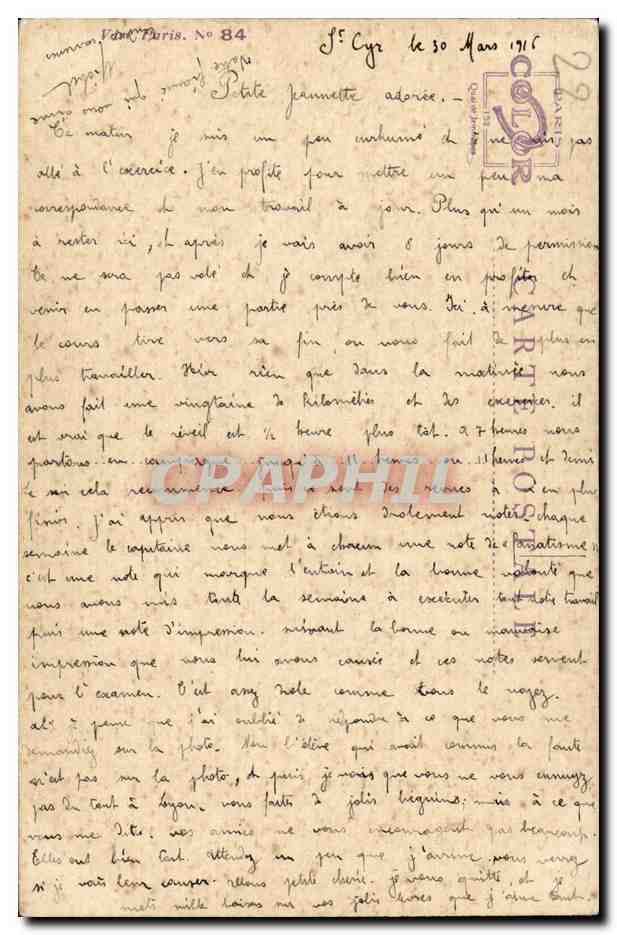 Visé Paris. No 84
St Cyr le 30 Mars 1916
29
Petite Jeannette adorée. —
Ce matin je suis un peu enrhumé et ne suis pas
allé à l'exercice. J'en profite pour mettre un peu ma
correspondance et mon travail à jour. Plus qu'un mois
à rester ici, et après je vais avoir 8 jours de permission
Ce ne sera pas volé et je compte bien en profiter et
venir en passer une partie près de vous. Ici à mesure que
le cours tire vers sa fin, on nous fait de plus en
plus travailler. Hier rien que dans la matinée nous
avons fait une vingtaine de kilomètres et des exercices. il
est vrai que le réveil est ½ heure plus tôt. a 7 heures nous
partons en campagne jusqu'à 11 heures ou 11 heures et demi
le soir cela recommence puis des revues à en plus
finir. J'ai appris que nous étions drolement notés. chaque
semaine le capitaine nous met à chacun une note de fanatisme
c'est une note qui marque l'entrain et la bonne volonté que
nous avons mis toute la semaine à executer tout notre travail
puis une note d'impression. suivant la bonne ou mauvaise
impression que nous lui avons causée et ces notes servent
pour l'examen. C'est assez drole comme vous le voyez.
à peine que j'ai oublié de répondre à ce que vous me
demandez sur la photo. Non l'élève qui avait commis la faute
n'est pas sur la photo, et puis je vois que vous ne vous ennuyez
pas du tout à Lyon. vous faites de jolis beguins; mais à ce que
vous me dites vos amies ne vous encouragent pas beaucoup.
Elles ont bien tort. Attendez un peu que j'arrive vous verrez
si je vais leur causer. Allons petite cherie je vous quitte, et je
mets mille baisers sur vos jolies lèvres que j'aime tant.
Votre fiancé qui vous aime
PARIS
COLOR
152
Quai de Jemmapes
CARTE POSTALE
CPARAMA